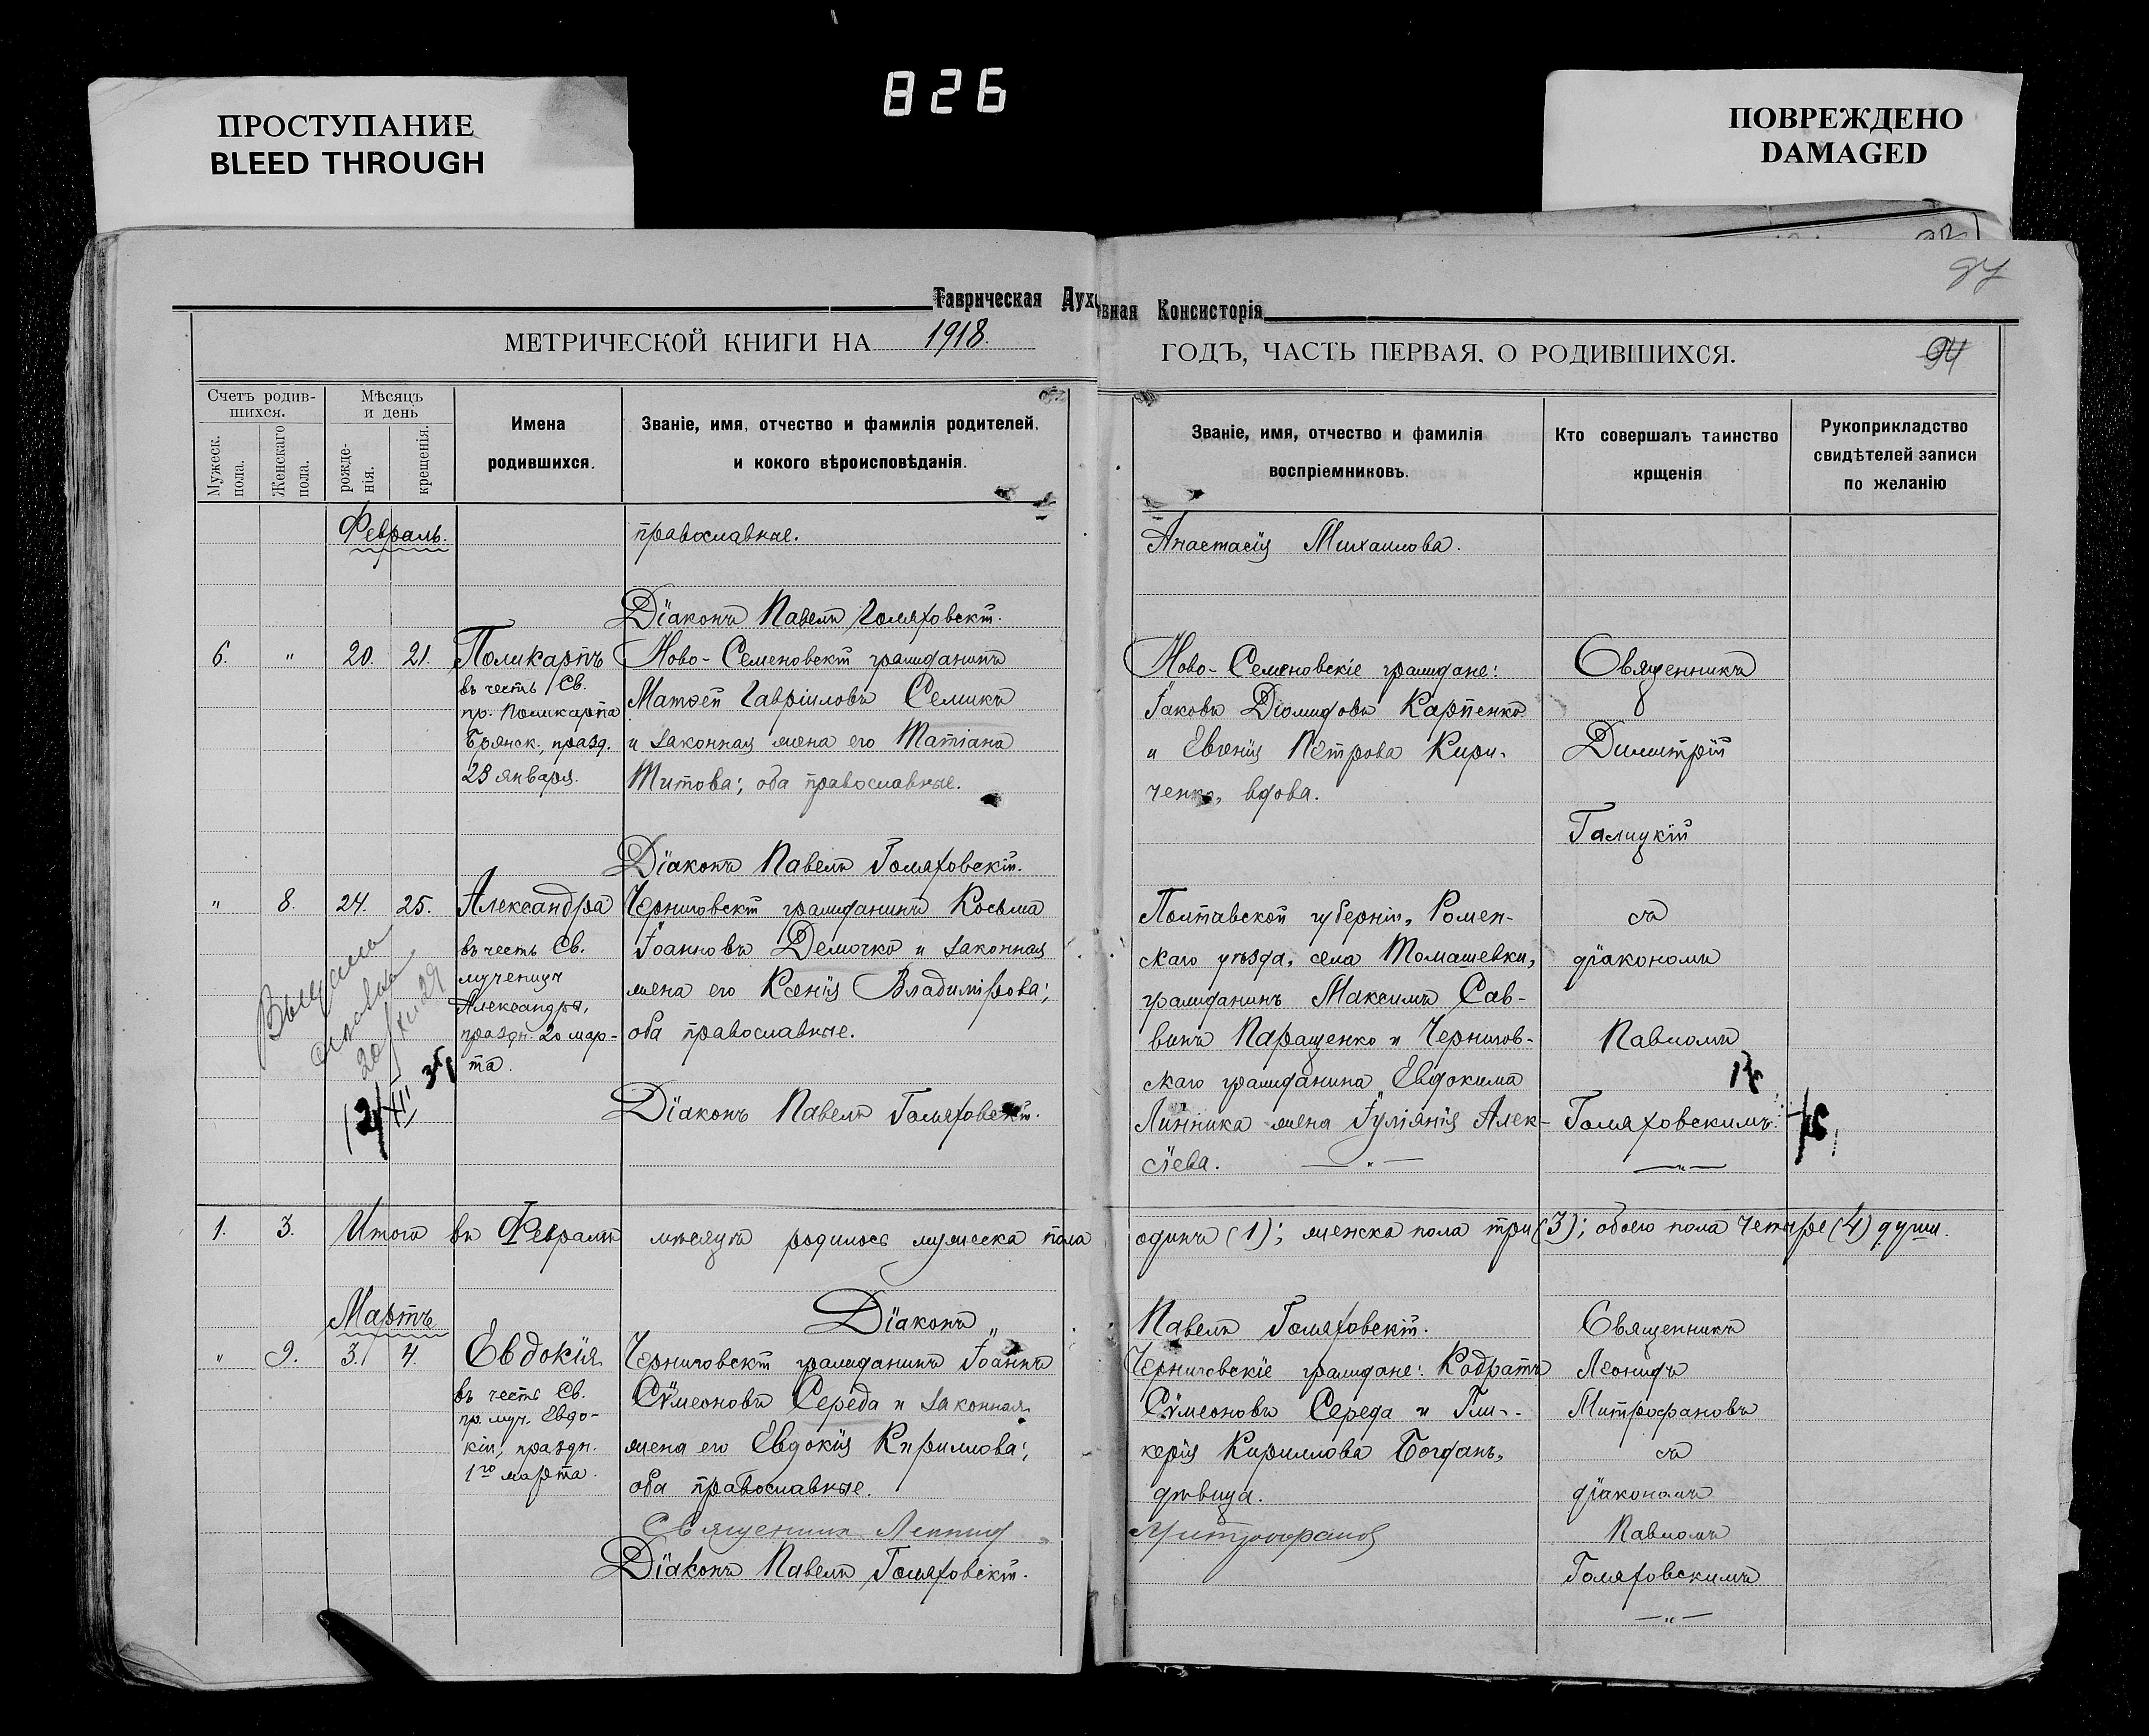 826
ПРОСТУПАНИЕ
BLEED THROUGH
ПОВРЕЖДЕНО
DAMAGED
Таврическая Духовная Консисторія
МЕТРИЧЕСКОЙ КНИГИ НА 1918. ГОДЪ, ЧАСТЬ ПЕРВАЯ, О РОДИВШИХСЯ.
94
Счетъ родив-
шихся.
Мужеск.
пола.
Женскаго
пола.
Мѣсяцъ
и день
рожде-
нія.
крещенія.
Имена
родившихся.
Званіе, имя, отчество и фамилія родителей,
и кокого вѣроисповѣданія.
Званіе, имя, отчество и фамилія
воспріемниковъ.
Кто совершалъ таинство
крщенія
Рукоприкладство
свидѣтелей записи
по желанію
Февраль.
православные.
Анастасія Михаилова.
Діаконъ Павелъ Голяховскій.
6. " 20. 21.
Поликарпъ
въ честь Св.
пр. Поликарпа
Брянск., празд.
23 января.
Ново-Семеновскій гражданинъ
Матѳей Гавріиловъ Семикъ
и законная жена его Татіана
Титова; оба православные.
Діаконъ Павелъ Голяховскій.
Ново-Семеновскіе граждане:
Іаковъ Діомидовъ Карпенко
и Евгенія Петрова Кири-
ченко, вдова.
Священникъ
Димитрій
Галицкій
съ
діакономъ
Павломъ
Голяховскимъ.
" 8. 24. 25.
Александра
въ честь Св.
мученицы
Александры,
праздн. 20 мар-
та.
Черниговскій гражданинъ Косьма
Іоанновъ Демочко и законная
жена его Ксенія Владимірова;
оба православные.
Діаконъ Павелъ Голяховскій.
Полтавской губерніи, Ромен-
скаго уѣзда, села Томашевки,
гражданинъ Максимъ Сав-
винъ Паращенко и Чернигов-
скаго гражданина Евдокима
Линника жена Іуліанія Алек-
сіева.
1. 3. Итого въ Февралѣ мѣсяцѣ родилось мужеска пола одинъ (1); женска пола три (3); обоего пола четыре (4) души.
Діаконъ Павелъ Голяховскій.
Мартъ
" 9. 3. 4.
Евдокія
въ честь Св.
пр. муч. Евдо-
кіи, праздн.
1го марта.
Черниговскій гражданинъ Іоаннъ
Сѵмеоновъ Середа и законная
жена его Евдокія Кириллова;
оба православные.
Священник Леонид Митрофанов
Діаконъ Павелъ Голяховскій.
Черниговскіе граждане: Кодратъ
Сѵмеоновъ Середа и Гли-
керія Кириллова Богданъ,
дѣвица.
Священникъ
Леонидъ
Митрофановъ
съ
діакономъ
Павломъ
Голяховскимъ